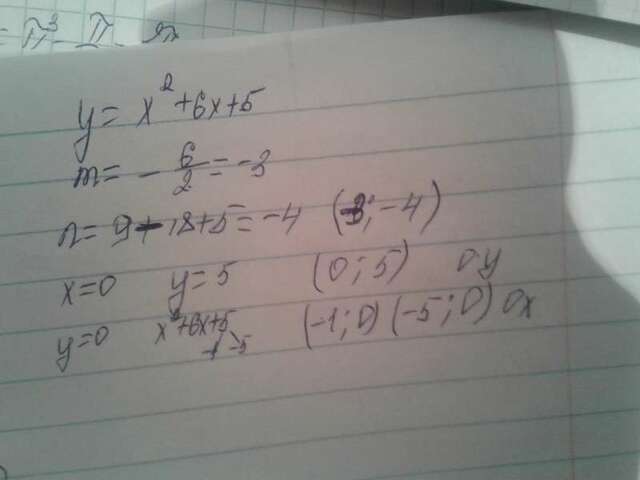 y = x² + 6x + 5
m = - 6/2 = -3
n = 9 - 18 + 5 = -4 (-3; -4)
x = 0 y = 5 (0; 5) oy
y = 0 x² + 6x + 5 (-1; 0) (-5; 0) Ox
-1 -5